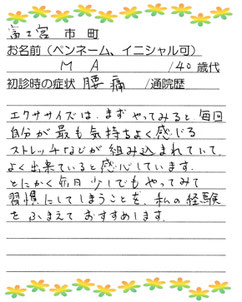 富士宮 市 町
お名前(ペンネーム、イニシャル可)
M A /40歳代
初診時の症状 腰痛 /通院歴
エクササイズは、まずやってみると毎回
自分が最も気持ちよく感じる
ストレッチなどが組み込まれていて
よく出来ていると感心しています。
とにかく毎日少しでもやってみて
習慣にしてしまうことを、私の経験
をふまえておすすめします。